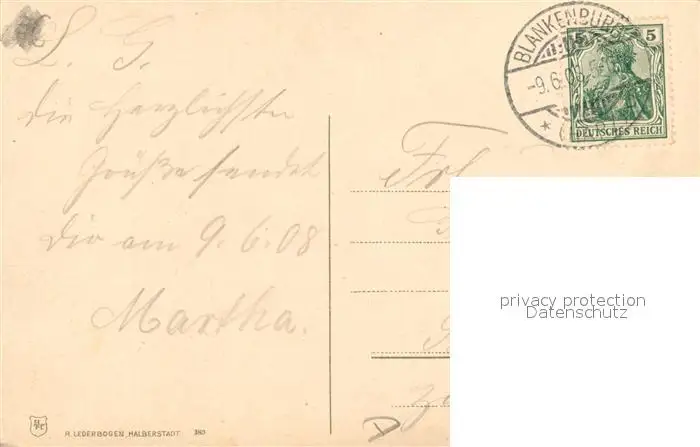 L. G.
Die Herzlichste
Grüße sendet
Dir am 9.6.08
Martha.
H. LEDERBOGEN, HALBERSTADT
BLANKENBURG
-9.6.08
(HARZ)
5 5
DEUTSCHES REICH
Frl
privacy protection
Datenschutz